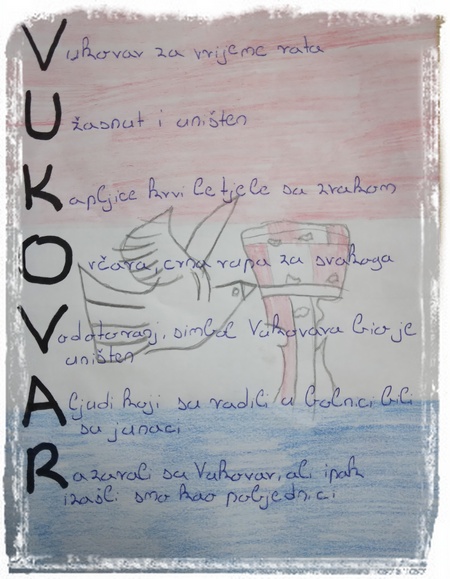 Vukovar za vrijeme rata
Užasnut i uništen
Kapljice krvi letjele su zrakom
Ovčara, crna rupa za svakoga
Vodotoranj, simbol Vukovara bio je
uništen
A ljudi koji su radili u bolnici bili
su junaci
Razarali su Vukovar, ali ipak
izašli smo kao pobjednici